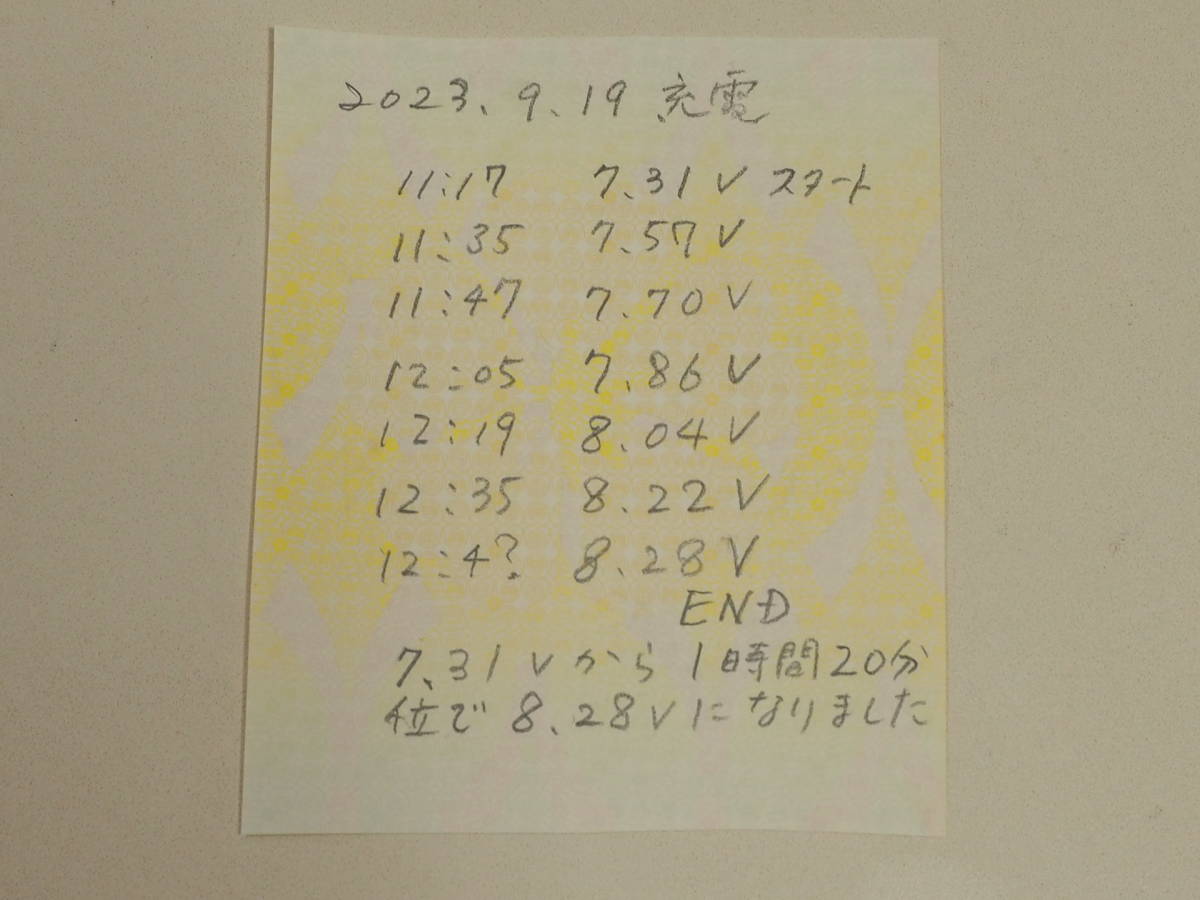 2023、9、19 充電
11:17 7.31V スタート
11:35 7.57V
11:47 7.70V
12:05 7.86V
12:19 8.04V
12:35 8.22V
12:4? 8.28V
END
7.31Vから1時間20分
位で8.28Vになりました